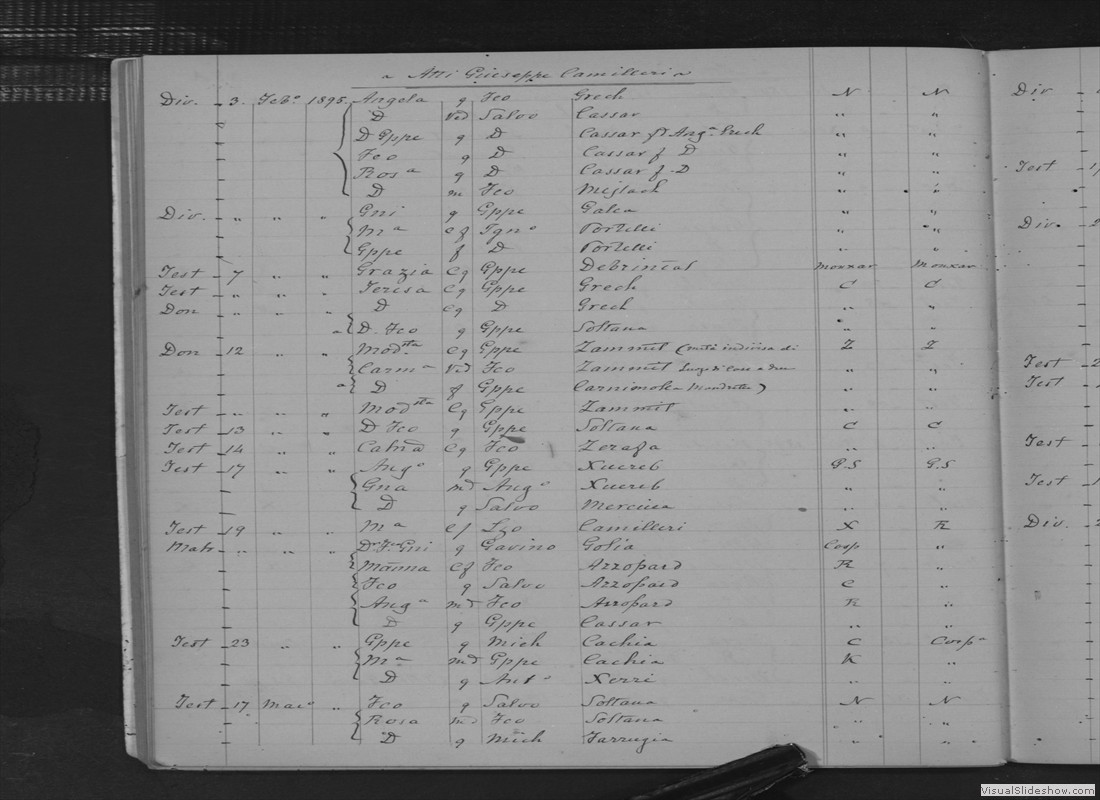 Atti Giuseppe Camilleri
Div. 3. Feb.o 1895. Angela g Fco Grech N N Div
D Ved Salvo Cassar " "
D Gppe g D Cassar Ang.a Grech " "
Fco g D Cassar f D " "
Ros a g D Cassar f D " " Test
D m Fco Mejlach " "
Div. " " " Gni g Gppe Galea " "
M a Cf Ign o Portelli " " Div.
Gppe f D Portelli " "
Test 7 " " Grazia Cg Gppe Debrincat Monxar Monxar
Test " " " Teresa Cg Gppe Grech C C
Don " " D Cg D Grech " "
a D. Fco g Gppe Soltana " "
Don 12 " " Mod.sta Cg Gppe Zammit ( indivisa di Z Z
Carm a Ved Fco Zammit " " Test
a D f Gppe ) " " Test
Test " " " Mod sta Cg Gppe Zammit " "
Test 13 " " D Fco g Gppe Soltana C C
Test 14 " " Cg Fco Zerafa " " Test
Test 17 " " Ang o g Gppe Xuereb G.S G.S
Gna md Ang o Xuereb " " Test
D g Salvo Mercieca " "
Test 19 " " M a Cf Lzo Camilleri X K Div.
Matr " " " Gni g Gavino Golia Cosp "
Cf Fco Azzopard K "
Fco g Salvo Azzopard C "
Ang a md Fco Azzopard K "
D g Gppe Cassar " "
Test 23 " " Gppe g Mich Cachia C Cosp a
M a md Gppe Cachia K "
D g Ant o Xerri " "
Test 17 Mar o " Fco g Salvo Soltana N N
Rosa md Fco Soltana " "
D g Mich Farrugia " "
VisualSlideshow.com